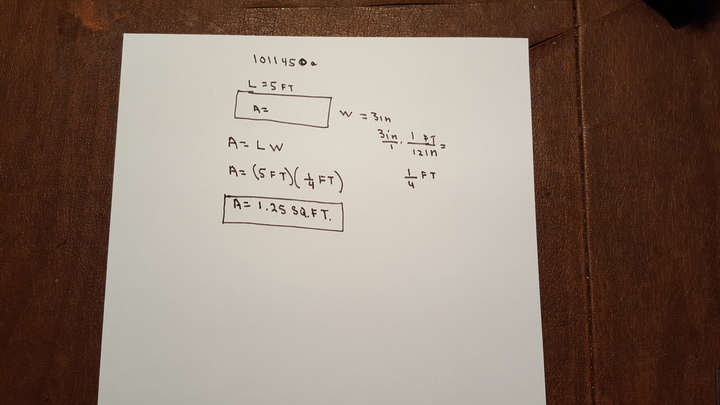 10114500a
L = 5 FT
A=
W = 3in
3in/1 · 1 FT/12in =
1/4 FT
A = LW
A = (5 FT)(1/4 FT)
A = 1.25 SQ.FT.